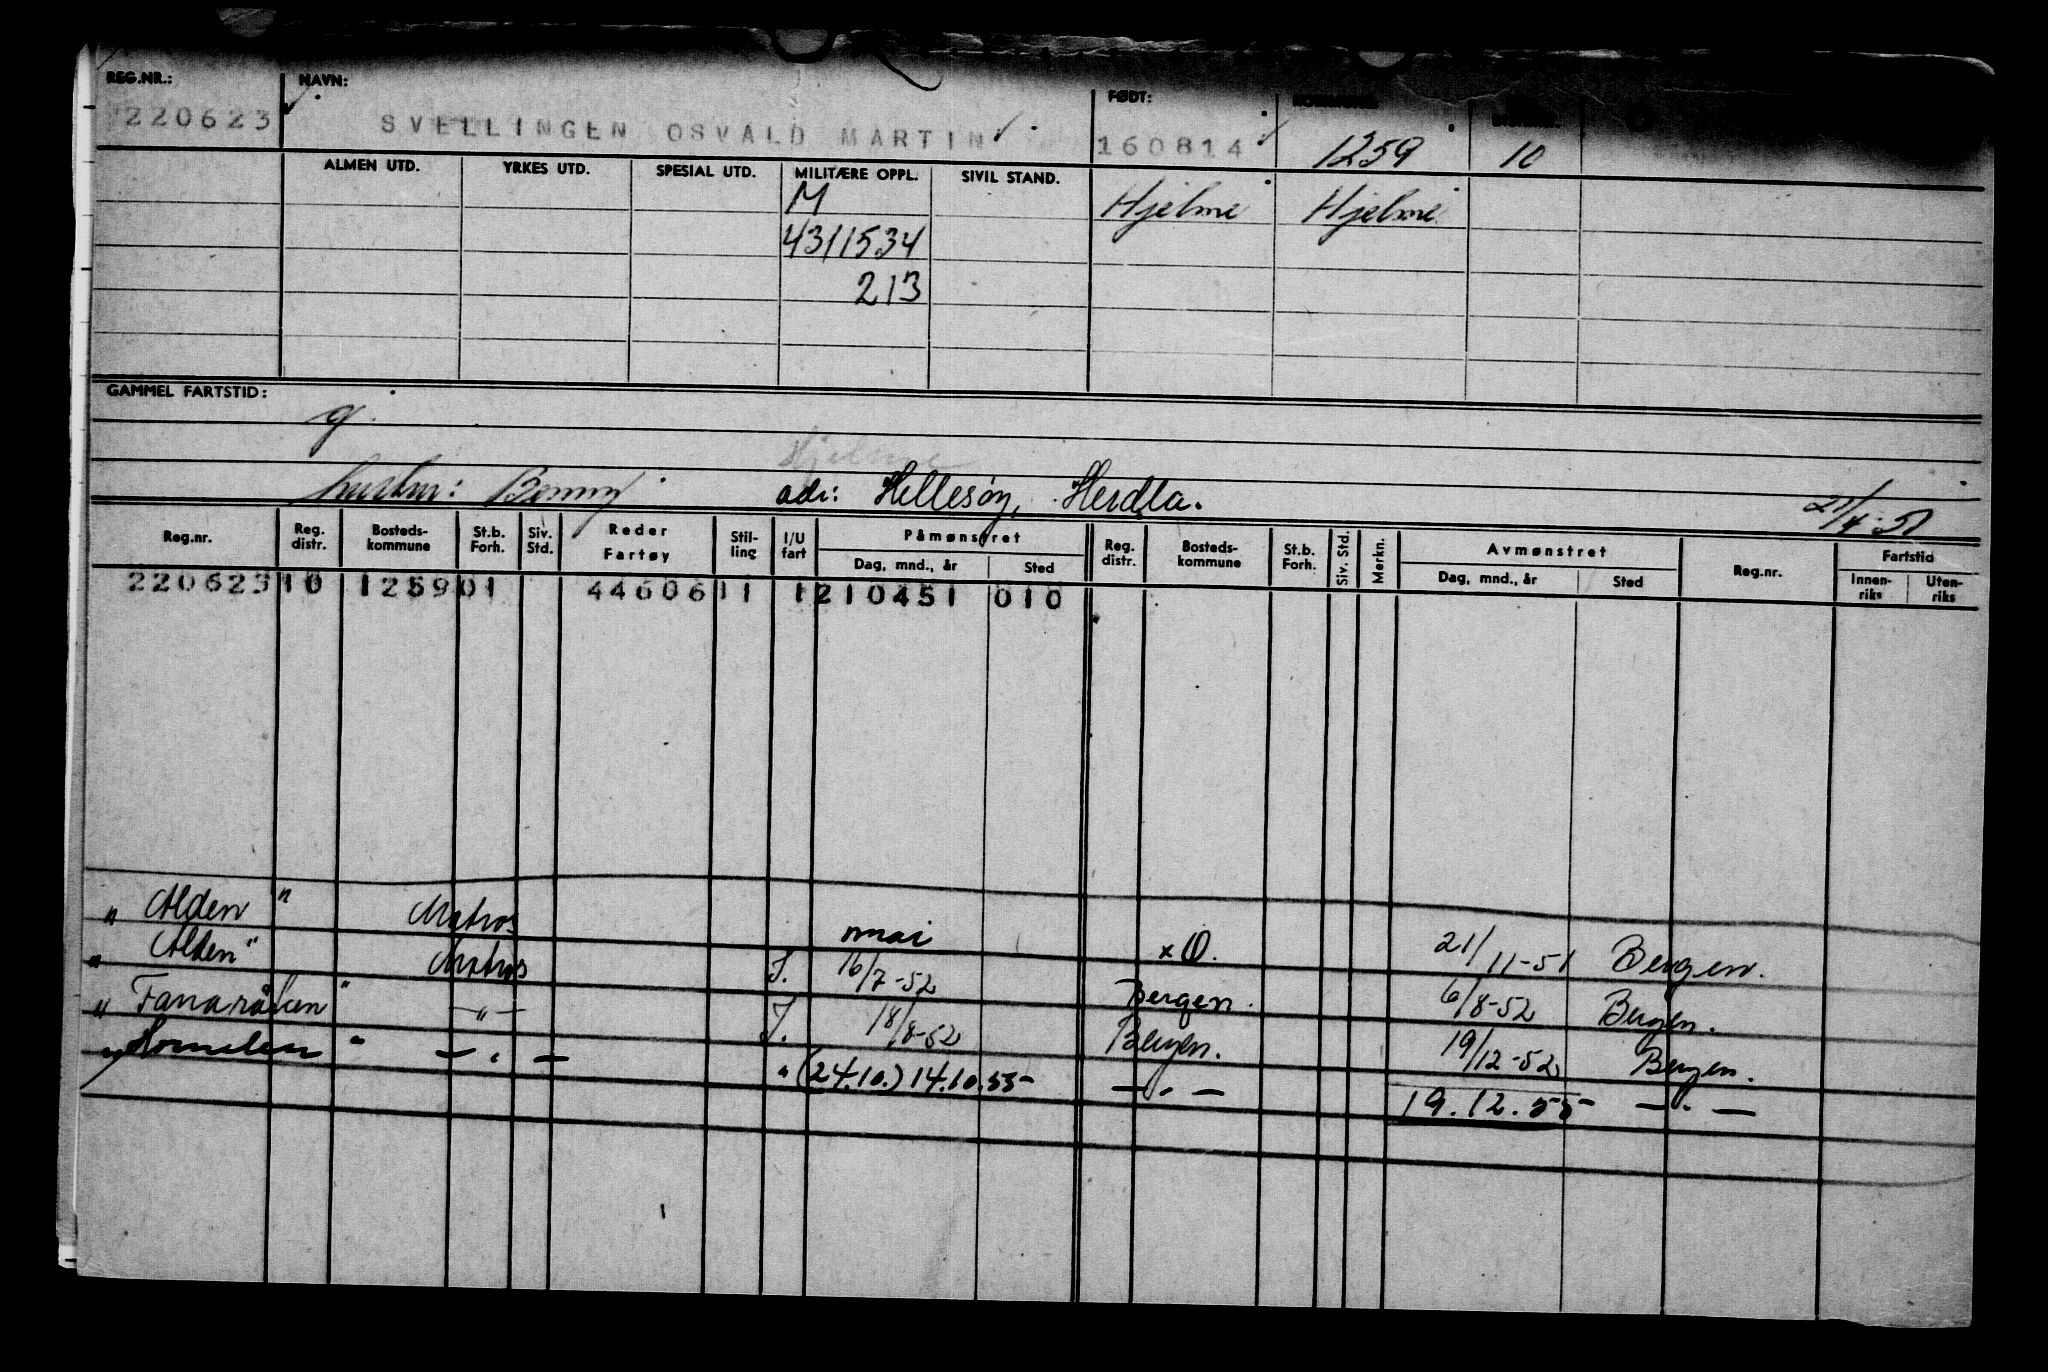 REG.NR.: NAVN: FØDT:
220623 SVELLINGEN OSVALD MARTIN 160814 1259 10
ALMEN UTD. YRKES UTD. SPESIAL UTD. MILITÆRE OPPL. SIVIL STAND.
M Hjelme Hjelme
4311534
213
GAMMEL FARTSTID:
g.
Hjelme
hustru: Benny adr: Hellesøy, Herdla. 21/4-51
Reg.nr. Reg. distr. Bosteds-kommune St.b. Forh. Siv. Std. Reder Fartøy Stil-ling I/U fart Påmønstret Dag, mnd., år Sted Reg. distr. Bosteds-kommune St.b. Forh. Siv. Std. Merkn. Avmønstret Dag, mnd., år Sted Reg.nr. Fartstid Innen-riks Uten-riks
220623 10 1259 01 44606 11 1 210451 010
" Alden " Matros mai x O. 21/11-51 Bergen.
" Alden " Matros I. 16/7-52 Bergen. 6/8-52 Bergen.
" Fanaråken " —"— I. 18/8-52 Bergen. 19/12-52 Bergen.
" Hornelen " —"— " (24.10.) 14.10.55 —"— 19.12.55 —"—